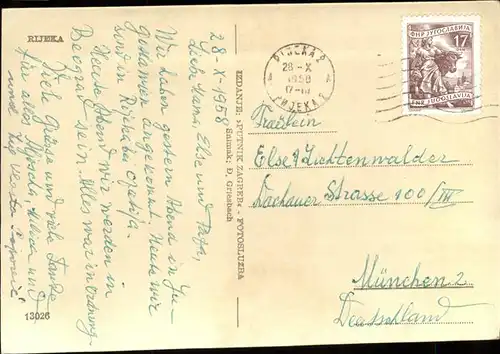 RIJEKA
28-X-1958
Liebe Mama, Else und Papa,
Wir haben gestern Abend in Ju-
goslawien angekommt. Heute wir
sind in Rijeka in Opatija.
Heute Abend wir werden in
Beograd sein. Alles war in Ordnung.
Viele Grüsse und viele Danke
für alles
und
13026
IZDANJE: »PUTNIK ZAGREB« - FOTOSLUŽBA
Snimak: D. Griesbach
RIJEKA
28-X
1958
17-18
RIJEKA
FNR JUGOSLAVIJA
17
FNR JUGOSLAVIJA
Fräulein
Else Lichtenwalder
Dachauer Strasse 100/III
München 2
Deutschland